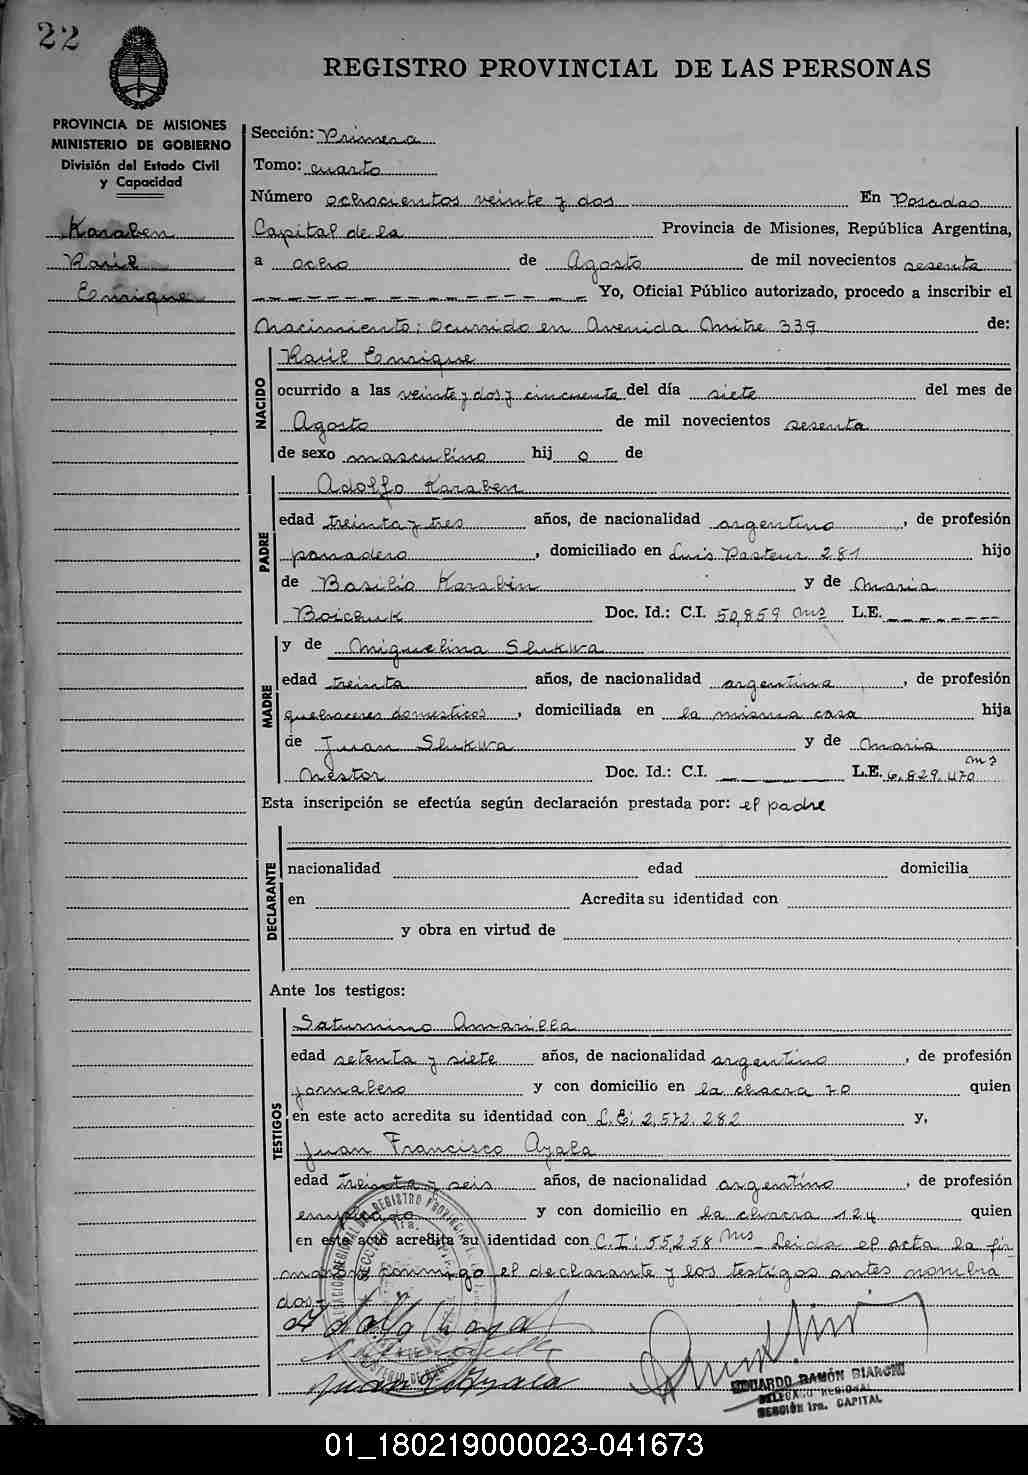 22
REGISTRO PROVINCIAL DE LAS PERSONAS
PROVINCIA DE MISIONES
MINISTERIO DE GOBIERNO
División del Estado Civil
y Capacidad
Karaben
Raúl
Enrique
Sección: Primera
Tomo: cuarto
Número ochocientos veinte y dos En Posadas
Capital de la Provincia de Misiones, República Argentina,
a ocho de Agosto de mil novecientos sesenta
Yo, Oficial Público autorizado, procedo a inscribir el
Nacimiento: Ocurrido en Avenida Mitre 339 de:
NACIDO
Raúl Enrique
ocurrido a las veinte y dos y cincuenta del día siete del mes de
Agosto de mil novecientos sesenta
de sexo masculino hij o de
PADRE
Adolfo Karaben
edad treinta y tres años, de nacionalidad argentino, de profesión
panadero, domiciliado en Luis Pasteur 281 hijo
de Basilio Karabin y de Maria
Boichuk Doc. Id.: C.I. 50,859 Mns L.E.
MADRE
y de Miguelina Slukwa
edad treinta años, de nacionalidad argentina, de profesión
quehaceres domesticos, domiciliada en la misma casa hija
de Juan Slukwa y de Maria
Nestor Doc. Id.: C.I. L.E. 6.829.470
Esta inscripción se efectúa según declaración prestada por: el padre
DECLARANTE
nacionalidad edad domicilia
en Acredita su identidad con
y obra en virtud de
Ante los testigos:
TESTIGOS
Saturnino Amarilla
edad setenta y siete años, de nacionalidad argentino, de profesión
jornalero y con domicilio en la chacra 70 quien
en este acto acredita su identidad con L.E: 2,572.282 y,
Juan Francisco Ayala
edad treinta y seis años, de nacionalidad argentino, de profesión
empleado y con domicilio en la chacra 124 quien
en este acto acredita su identidad con C.I: 55,258 Mns Leida el acta la fir-
man conmigo el declarante y los testigos antes nombra
dos
EDUARDO RAMÓN BIANCHI
DELEGADO REGIONAL
SECCIÓN 1ra. CAPITAL
01_180219000023-041673